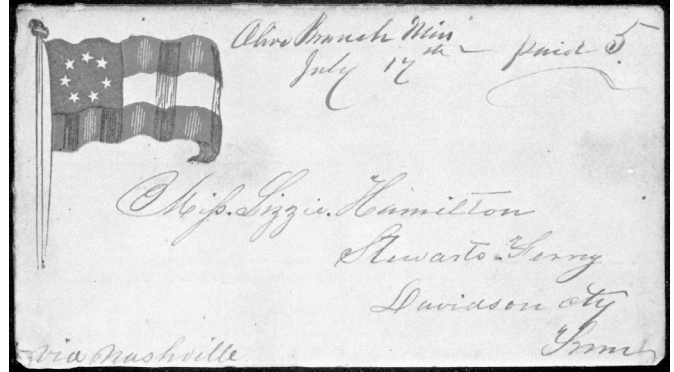 Olive Branch Miss
July 17th paid 5
Miss. Lizzie. Hamilton
Stewarts Ferry
Davidson cty
Tenn
via Nashville